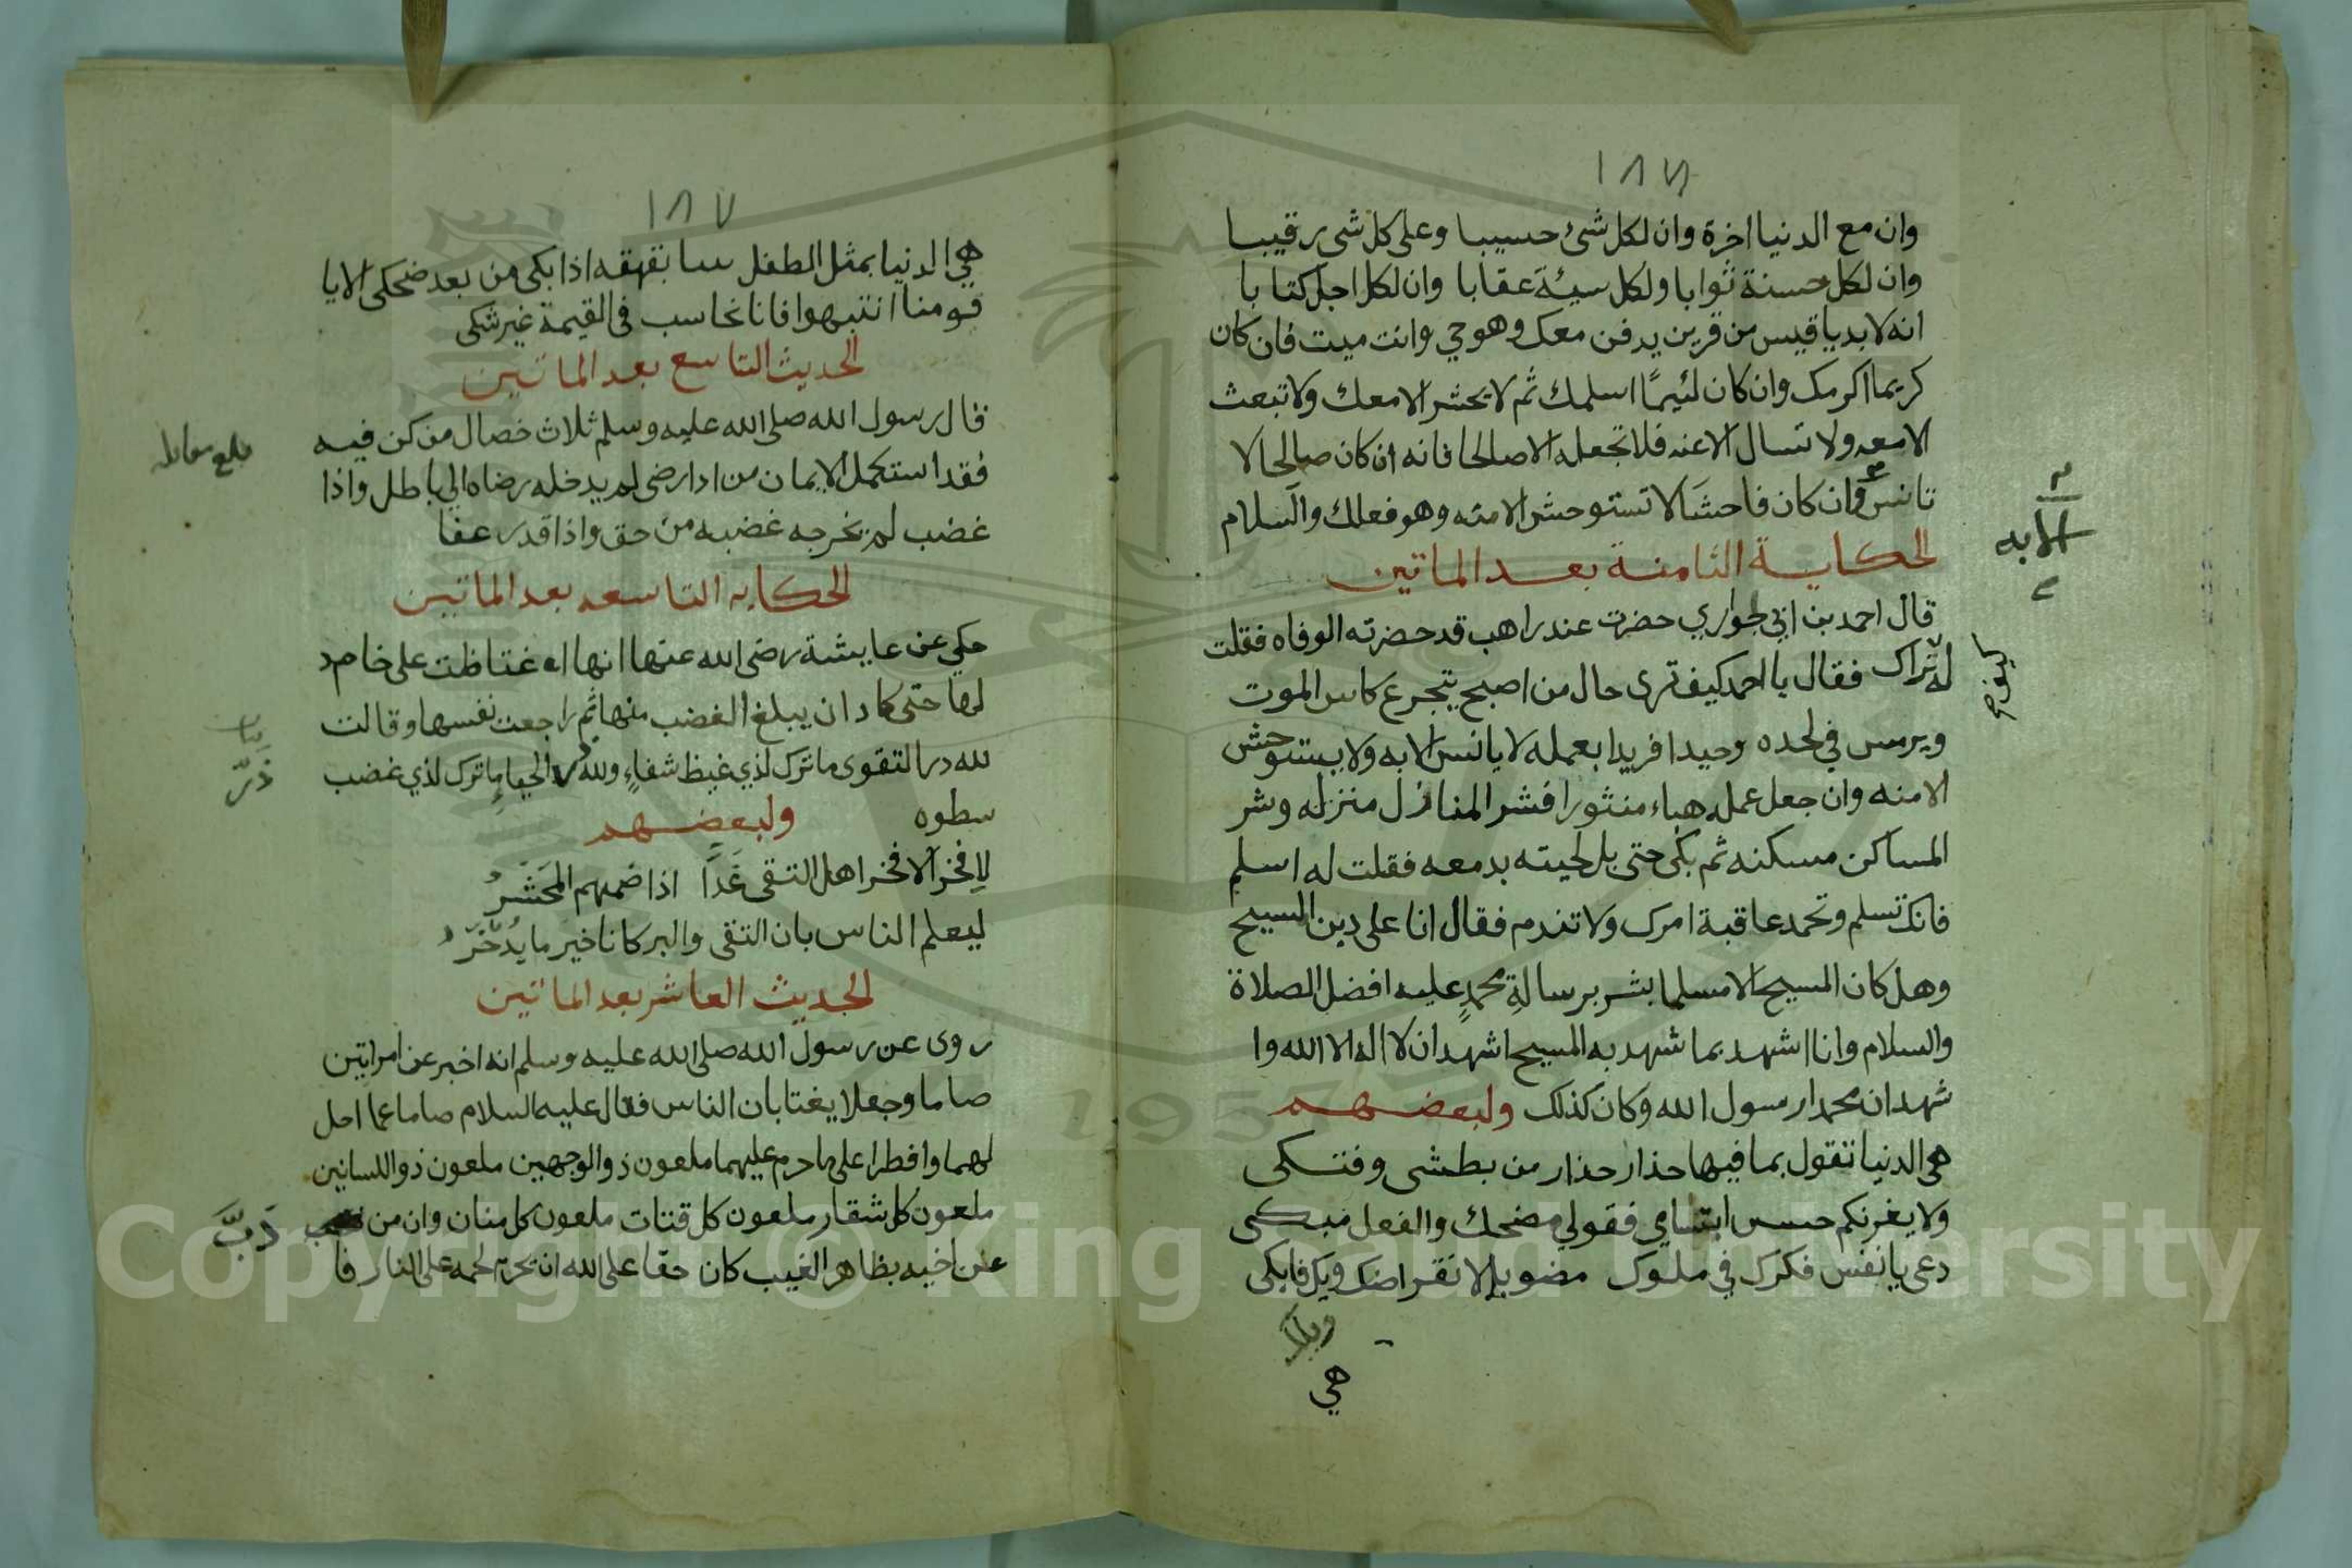 ١٨٦
وان مع الدنيا اخرة وان لكل شئ حسيبا وعلى كل شي رقيبا
وان لكل حسنة ثوابا ولكل سيئة عقابا وان لكل اجل كتابا
انه لابد يا قيس من قرين يدفن معك وهو حي وانت ميت فان كان
كريما اكرمك وان كان لئيمًا اسلمك ثم لا يحشر الا معك ولا تبعث
الا معه ولا تسال الا عنه فلا تجعله الا صالحا فانه ان كان صالحا لا
تانس وان كان فاحشًا لا تستوحش الا منه وهو فعلك والسلام
الا به
الحكاية الثامنة بعد الماتين
قال احمد بن ابي الجواري حضرت عند راهب قد حضرته الوفاه فقلت
له تراك فقال يا احمد كيف ترى حال من اصبح يتجرع كاس الموت
ويرمس في لحده وحيدا فريدا بعمله لا يانس الا به ولا يستوحش
الا منه وان جعل عمله هباء منثورا فشر المنازل منزله وشر
المساكن مسكنه ثم بكى حتى بل لحيته بدمعه فقلت له اسلم
فانك تسلم وتحمد عاقبة امرك ولا تندم فقال انا على دين المسيح
وهل كان المسيح الا مسلما بشر برسالةِ محمدٍ عليه افضل الصلاة
والسلام وانا اشهد بما شهد به المسيح اشهد ان لا اله الا الله وا
شهد ان محمدا رسول الله وكان كذلك ولبعضهم
هي الدنيا تقول بما فيها حذار حذار من بطشى وفتكى
ولا يغرنكم حسن ابتسامي فقولي مضحك والفعل مبكى
دعى يا نفس فكرك في ملوك مضو بل لا نقراضك ويك فابكى
هي
١٨٧
هي الدنيا بمثل الطفل بقهقه اذا بكى من بعد ضحكى الا يا
قومنا انتبهوا فانا نحاسب في القيمة غير شكى
الحديث التاسع بعد الماتين
قال رسول الله صلى الله عليه وسلم ثلاث خصال من كن فيه
فقد استكمل الايمان من اذا رضى لم يدخله رضاه الي باطل واذا
غضب لم يخرجه غضبه من حق واذا قدر عفا
الحكايه التاسعه بعد الماتين
حكي عن عايشة رضى الله عنها انها اغتاظت على خادم
لها حتى كاد ان يبلغ الغضب منها ثم راجعت نفسها وقالت
لله در التقوى ما ترك لذي غيظ شفاءٍ ولله در الحياء ما ترك لذي غضب
سطوه ولبعضهم
لا فخر الا فخر اهل التقى غَدًا اذا ضمهم المَحْشَرُ
ليعلم الناس بان التقى والبر كانا خير ما يُدّخَرُ
الحديث العاشر بعد الماتين
روى عن رسول الله صلى الله عليه وسلم انه اخبر عن امراتين
صاما وجعلا يغتابان الناس فقال عليه السلام صاما عما احل
لهما وافطرا على ما حرم عليهما ملعون ذو الوجهين ملعون ذو اللسانين
ملعون كل شقار ملعون كل قتات ملعون كل منان وان من ذَبَّ
عن اخيه بظاهر الغيب كان حقا على الله ان يحرم لحمه على النار فا
Copyright © King Saud University
1957